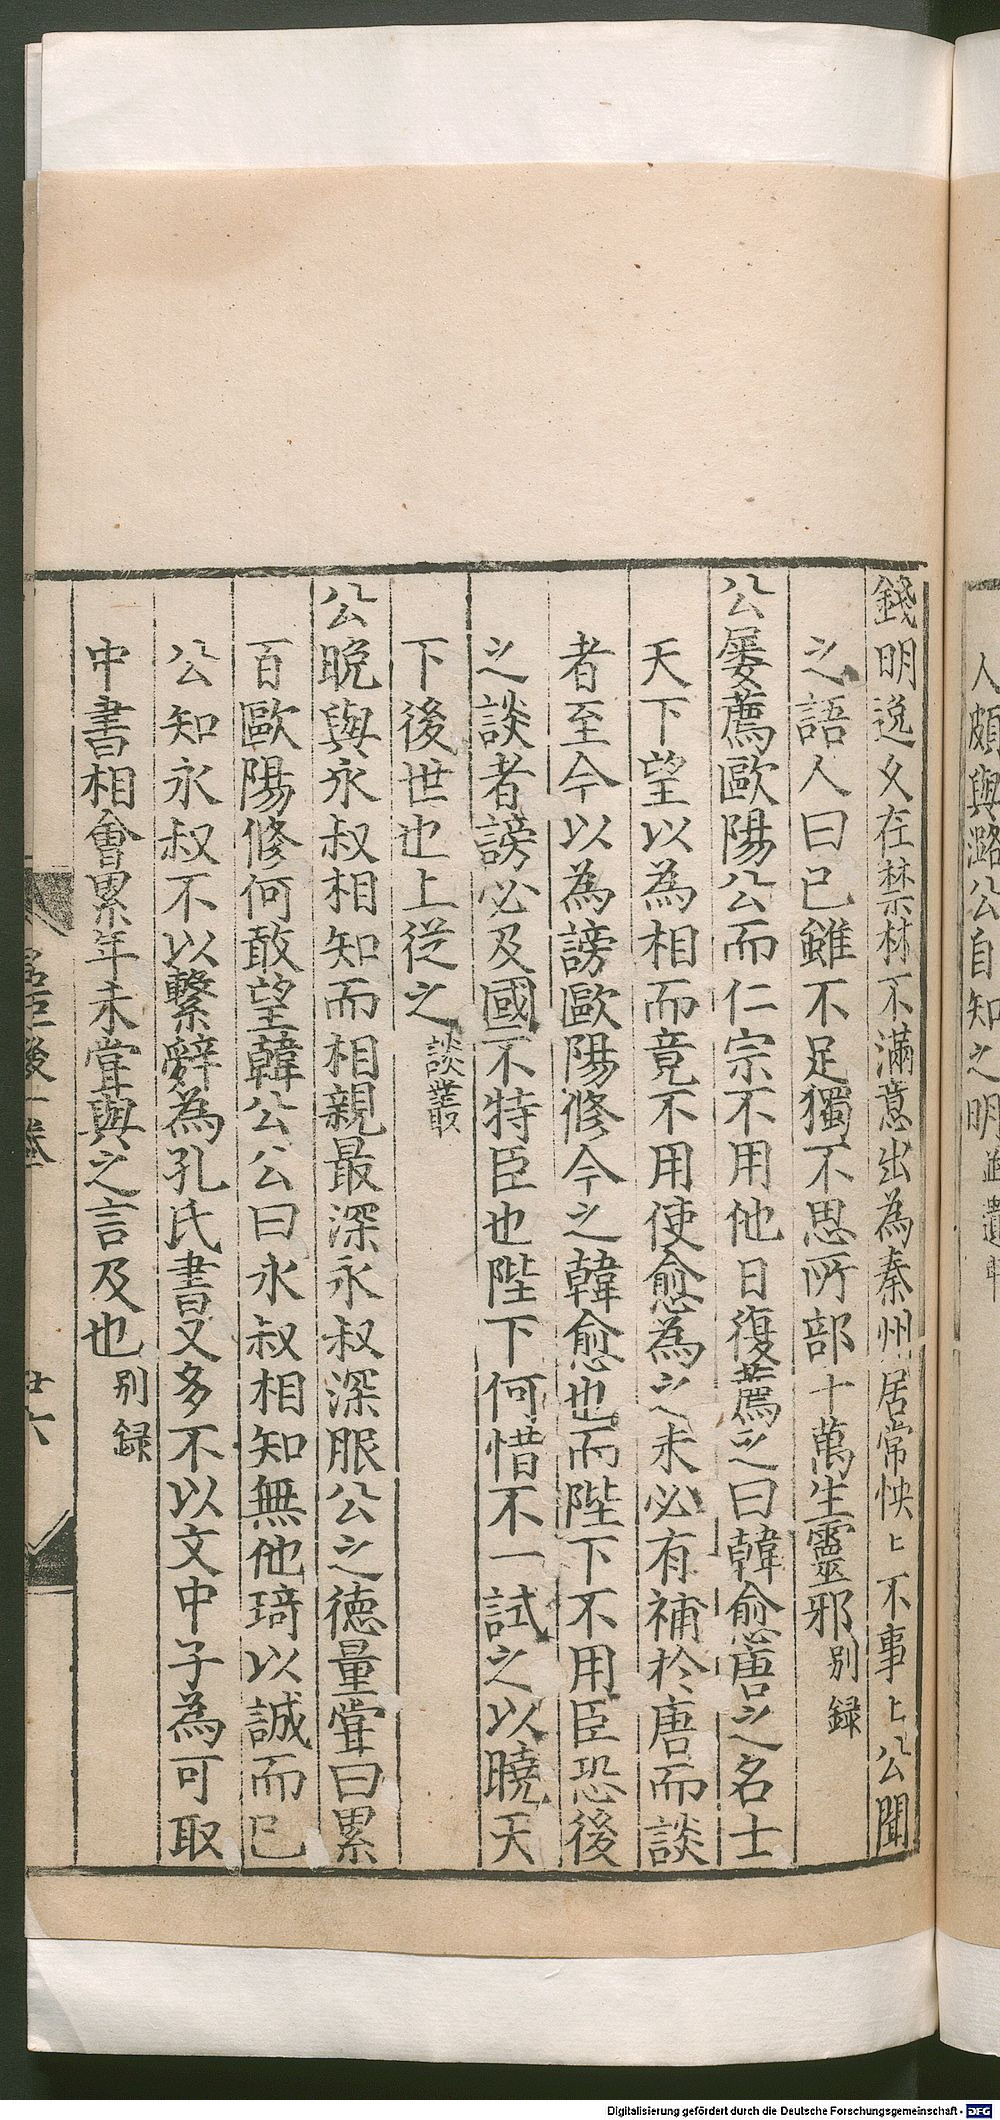 人頗與潞公自知之明
錢明逸久在禁林不滿意出為秦州居常怏〻不事〻公聞
之語人曰已雖不足獨不思所部十萬生靈邪別録
公屡薦歐陽公而仁宗不用他日復薦之曰韓愈唐之名士
天下望以為相而竟不用使愈為之未必有補於唐而談
者至今以為謗歐陽修今之韓愈也而陛下不用臣恐後
之談者謗必及國不特臣也陛下何惜不一試之以曉天
下後世也上從之談叢
公晚與永叔相知而相親最深永叔深服公之德量嘗曰累
百歐陽修何敢望韓公公曰永叔相知無他琦以誠而已
公知永叔不以繫辭為孔氏書又多不以文中子為可取
中書相會累年未嘗與之言及也別録
名臣後一卷
廿六
Digitalisierung gefördert durch die Deutsche Forschungsgemeinschaft - DFG